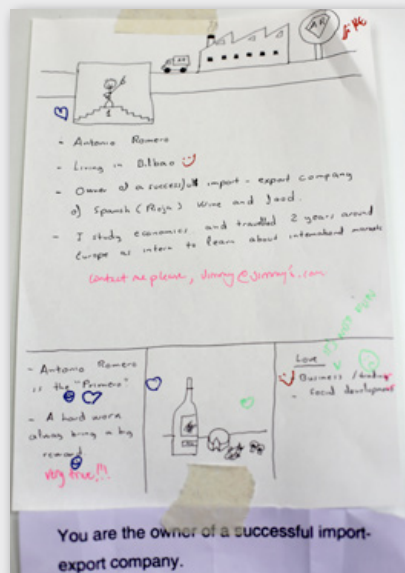 AR
1
- Antonio Romero
- Living in Bilbao
- Owner of a successful import - export company
of Spanish (Rioja) Wine and food.
- I study economics and travelled 2 years around
Europe as intern to learn about international markets
Contact me please, Jimmy@Jimmy's.com
- Antonio Romero
is the "Primero"
- A hard work
always bring a big
reward
very true!!!
Love
- Business / trading
- Social development
You are the owner of a successful import-
export company.